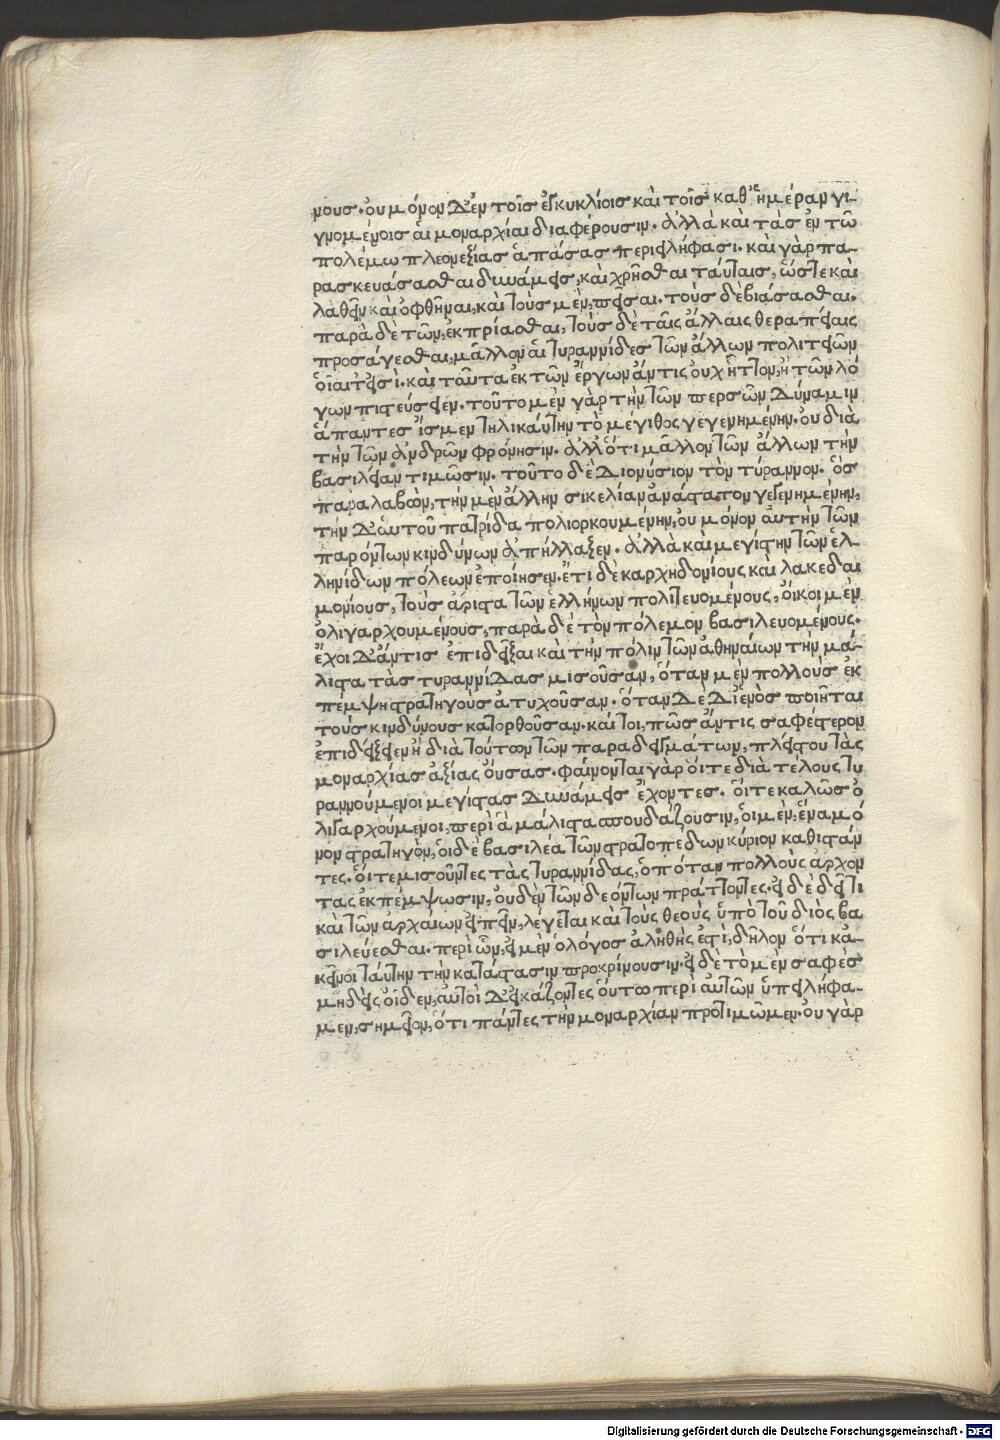 νους. ου μόνον δ' ἐν τοῖς ἐγκυκλίοις καὶ τοῖς καθ' ἡμέραν γι-
γνομένοις αι μοναρχίαι διαφέρουσιν. ἀλλὰ καὶ τὰς ἐν τῶ
πολέμω πλεονεξίας ἁπάσας περιειλήφασι. καὶ γὰρ πα-
ρασκευάσασθαι δυνάμεις, καὶ χρῆσθαι ταύταις, ὥστε καὶ
λαθεῖν καὶ ὀφθῆναι, καὶ τοὺς μὲν, πεῖσαι. τοὺς δὲ βιάσασθαι.
παρὰ δὲ τῶν, ἐκπρίασθαι, τοὺς δὲ ταῖς ἄλλαις θεραπείαις
προσάγεσθαι, μᾶλλον αἱ τυραννίδες τῶν ἄλλων πολιτειῶν
οἷαί τ' εἰσὶ. καὶ ταῦτα ἐκ τῶν ἔργων ἄν τις ουχ ἧττον, ἢ τῶν λό
γων πιστεύσειεν. τοῦτο μὲν γὰρ τὴν τῶν περσῶν δύναμιν
ἅπαντες ἴσμεν τηλικαύτην τὸ μέγιθος γεγενημένην. ου διὰ
τὴν τῶν ἀνδρῶν φρόνησιν. ἀλλ' ὅτι μᾶλλον τῶν ἄλλων τὴν
βασιλείαν τιμῶσιν. τοῦτο δὲ Διονύσιον τὸν τύραννον. ὃς
παραλαβὼν, τὴν μὲν ἄλλην σικελίαν ἀνάστατον γεγενημένην,
τὴν δ' ἑαυτοῦ πατρίδα πολιορκουμένην, ου μόνον αυτὴν τῶν
παρόντων κινδύνων ἀπήλλαξεν. ἀλλὰ καὶ μεγίστην τῶν ἑλ-
ληνίδων πόλεων ἐποίησεν. ἔτι δὲ καρχηδονίους και λακεδαι
μονίους, τοὺς ἄριστα τῶν ἑλλήνων πολιτευομένους, οἴκοι μὲν
ὀλιγαρχουμένους, παρὰ δὲ τὸν πόλεμον βασιλευομένους.
ἔχοι δ' ἄν τις ἐπιδεῖξαι καὶ τὴν πόλιν τῶν ἀθηναίων τὴν μά-
λιστα τὰς τυραννίδας μισοῦσαν, ὅταν μὲν πολλοὺς ἐκ
πέμψη στρατηγοὺς ἀτυχοῦσαν. ὅταν δὲ δι' ἑνὸς ποιῆται
τοὺς κινδύνους κατορθοῦσαν. καί τοι, πῶς ἄν τις σαφέστερον
ἐπιδείξειεν ἢ διὰ τούτων τῶν παραδειγμάτων, πλείστου τὰς
μοναρχίας ἀξίας ούσας. φαίνονται γὰρ οἵ τε διὰ τέλους τυ
ραννούμενοι μεγίστας δυνάμεις ἔχοντες. οἵ τε καλῶς ὀ
λιγαρχούμενοι, περὶ ἃ μάλιστα σπουδάζουσιν, οἱ μὲν, ἕνα μό
νον στρατηγὸν, οἱ δὲ βασιλέα τῶν στρατοπέδων κύριον καθιστάν
τες. οἵ τε μισοῦντες τὰς τυραννίδας, ὁπόταν πολλοὺς ἄρχον
τας ἐκπέμψωσιν, ουδὲν τῶν δεόντων πράττοντες. εἰ δὲ δεῖ τι
καὶ τῶν ἀρχαίων εἰπεῖν, λέγεται καὶ τοὺς θεοὺς ὑπὸ τοῦ διὸς βα
σιλεύεσθαι. περὶ ὧν, εἰ μὲν ὁ λόγος ἀληθὴς ἐστὶ, δῆλον ὅτι κἀ-
κεῖνοι ταύτην τὴν κατάστασιν προκρίνουσιν. εἰ δὲ τὸ μὲν σαφὲς
μηδεὶς οἶδεν, αυτοὶ δ' εἰκάζοντες οὕτω περὶ αυτῶν ὑπειλήφα-
μεν, σημεῖον, ὅτι πάντες τὴν μοναρχίαν προτιμῶμεν. ου γὰρ
Digitalisierung gefördert durch die Deutsche Forschungsgemeinschaft - DFG